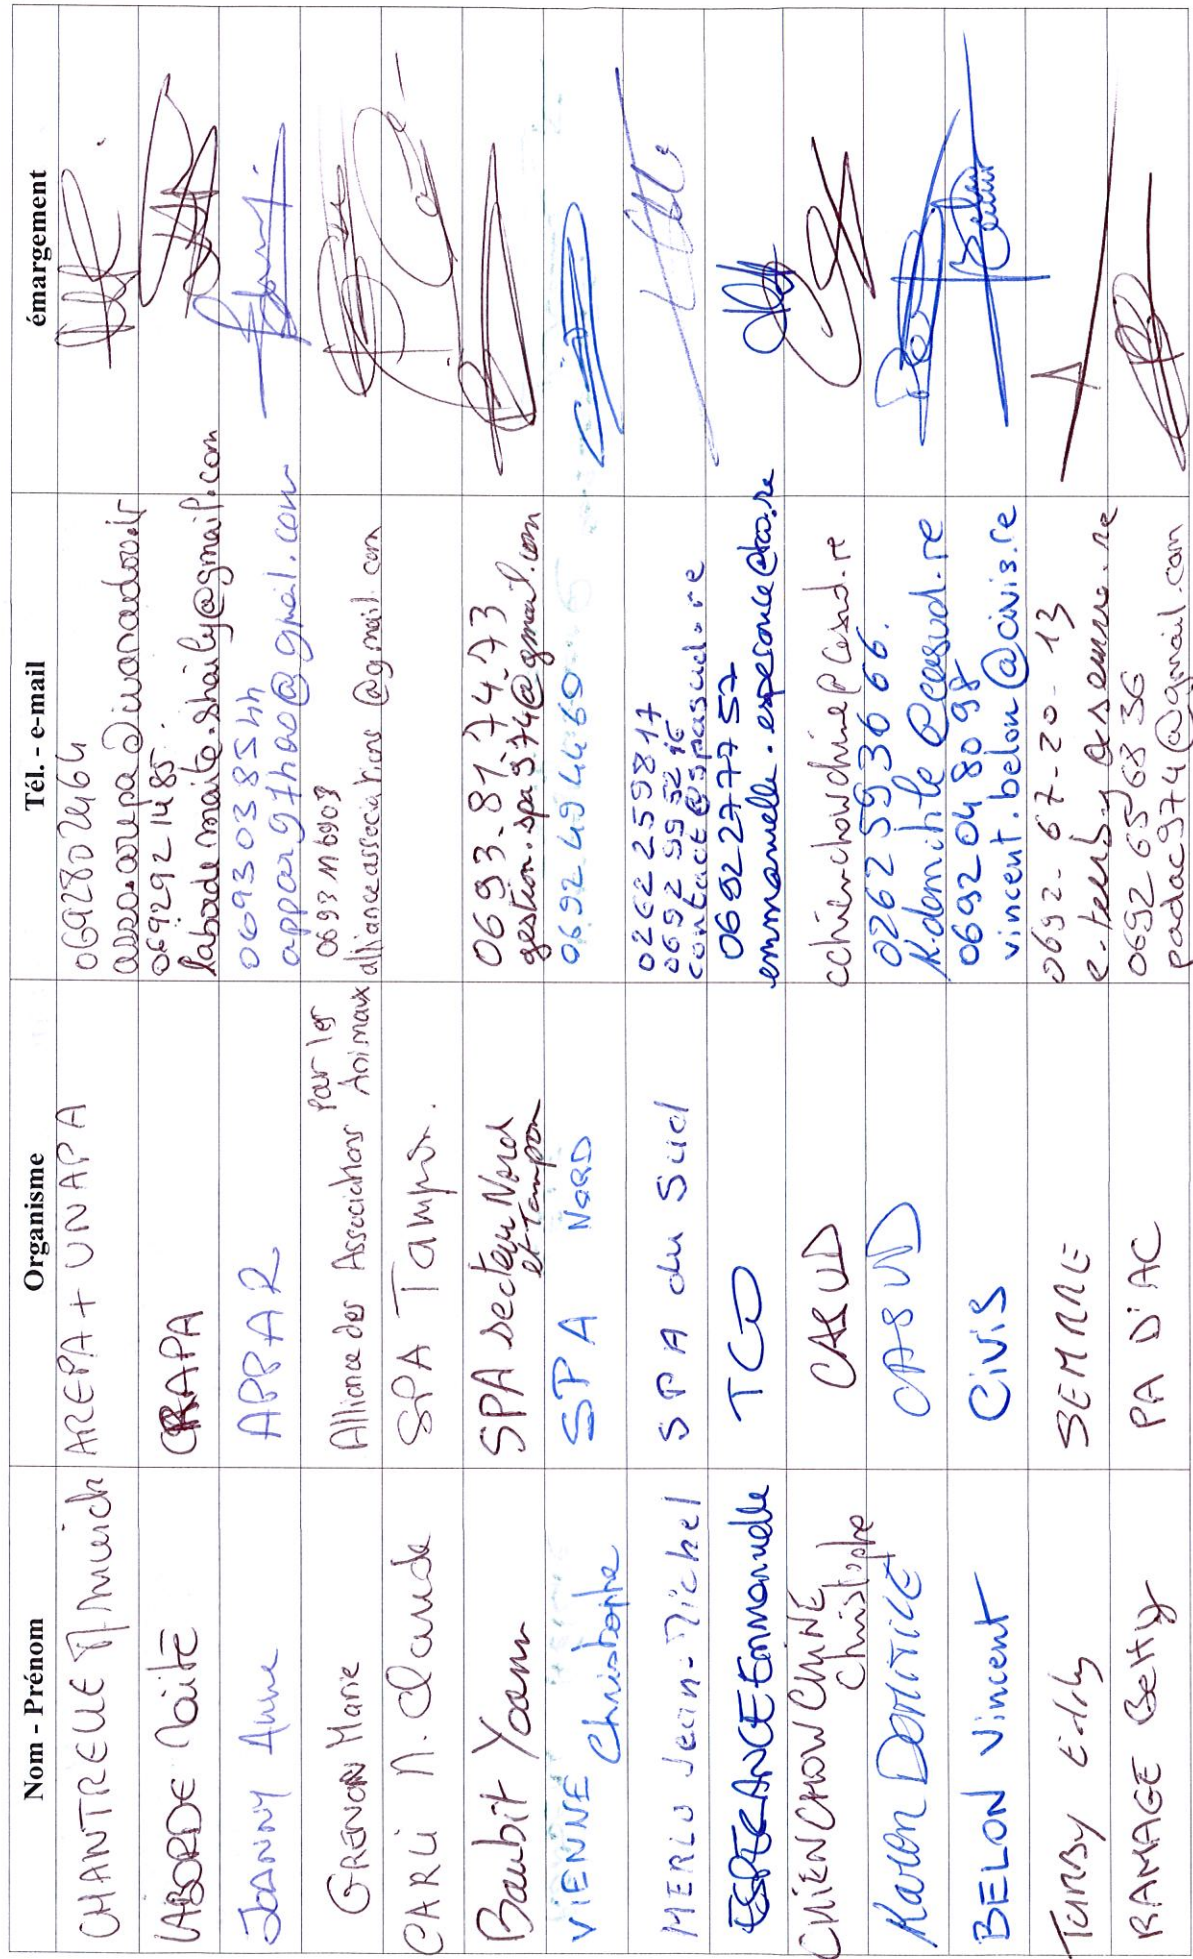 Nom - Prénom Organisme Tél. - e-mail émargement
CHANTRELLE AREPA + UNAPA 0692802464
LABORDE Maïté CRAPA 0692921485
labordemaite.shaily@gmail.com
JOANNY Anne APPAR 0693038544
appar97hao@gmail.com
GRENON Marie Alliance des Associations Pour les Animaux 0693116903
allianceassociations@gmail.com
CARLI M. Claude SPA Tampon.
Baubit Yoann SPA secteur Nord et Tampon 0693-81-74-73
gestion.spa974@gmail.com
VIENNE Christophe SPA NORD 0692494460
MERLO Jean-Michel SPA du Sud 0262259817
contact@spasud.re
ESPERANCE Emmanuelle TCO 0692277757
emmanuelle.esperance@tco.re
CHIENCHOWCHINE Christophe CASUD cchienchowchine@casud.re
Karen DOMITILE CASUD 0262593666.
k.domitile@casud.re
BELON Vincent CIVIS 0692048098
vincent.belon@civis.re
TURBY Eddy SEMRRE 0692-67-20-13
RAMAGE Betty PA D'AC 0692656836
padac974@gmail.com